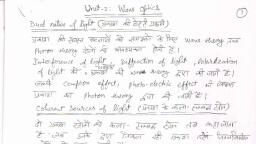 Unit-2: Wave Optics
Dual nature of light (प्रकाश की द्वैत प्रकृति)
प्रकाश की समस्त घटनाओं को समझाने के लिए Wave theory तथा
Photon theory दोनों की आवश्यकता होती है।
Interference of light, Diffraction of light, Polarization
of light की व्याख्या wave theory द्वारा की जाती है।
जबकि Compton effect, Photo-electric effect की व्याख्या
प्रकाश की Photon theory द्वारा की जाती है।
Coherent Sources of light (प्रकाश के कला-सम्बद्ध स्रोत)
दो प्रकाश स्रोतों को कला-सम्बद्ध स्रोत तब कहा जाता
है जब उनके द्वारा